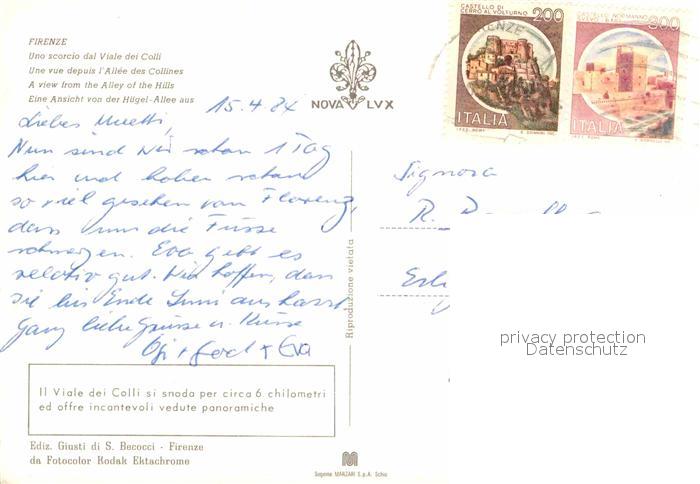 FIRENZE
Uno scorcio dal Viale dei Colli
Une vue depuis l'Allée des Collines
A view from the Alley of the Hills
Eine Ansicht von der Hügel-Allee aus
NOVA LVX
CASTELLO DI
CERRO AL VOLTURNO
200
ITALIA
CASTELLO NORMANNO
ITALIA
FIRENZE
15.4.84
Liebes Muetti,
Nun sind wir schon 1 Tag
hier und haben schon
so viel gesehen von Florenz,
dass uns die Füsse
schmerzen. Eva geht es
relativ gut. Wir hoffen, dass
sie bis Ende Juni aushaltet
Ganz liebe Grüsse u. Küsse
+ Eva
Signora
R.
Riproduzione vietata
privacy protection
Datenschutz
Il Viale dei Colli si snoda per circa 6 chilometri
ed offre incantevoli vedute panoramiche
Ediz. Giusti di S. Becocci - Firenze
da Fotocolor Kodak Ektachrome
Sagoma MANZARI S.p.A. Schio